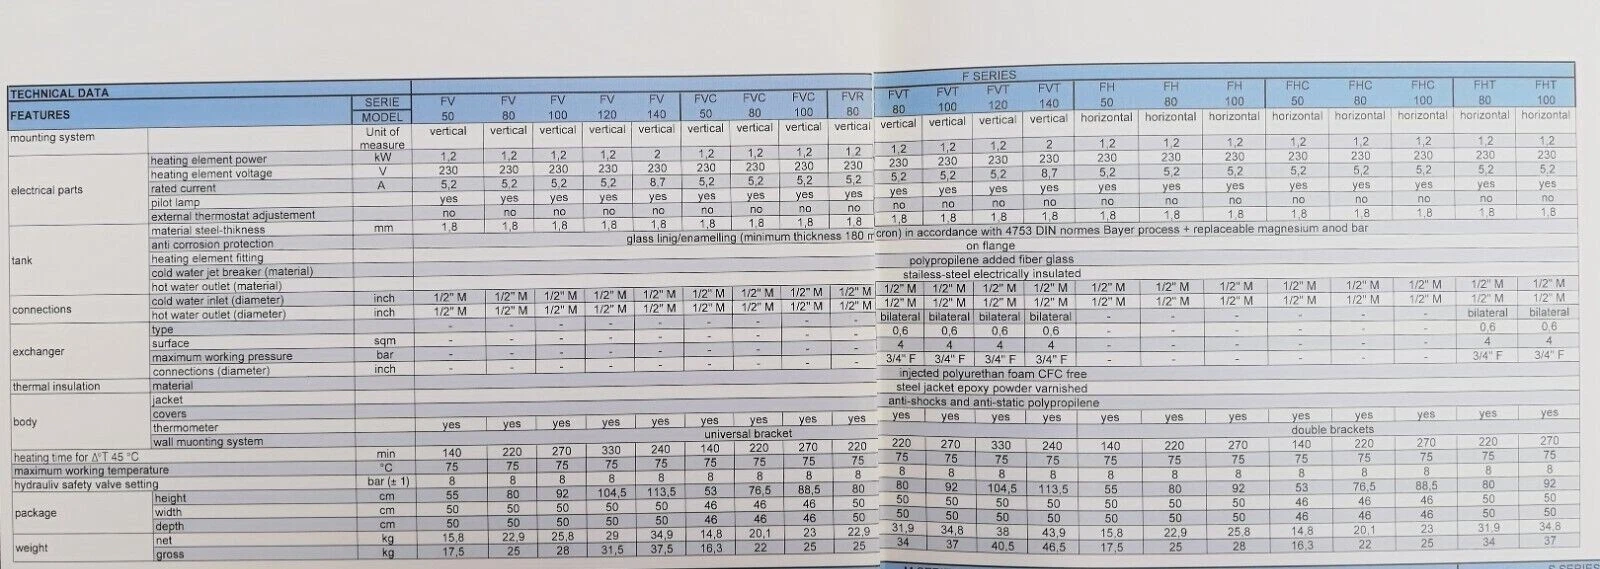 F SERIES
TECHNICAL DATA
FEATURES SERIE FV FV FV FV FV FVC FVC FVC FVR FVT FVT FVT FVT FH FH FH FHC FHC FHC FHT FHT
MODEL 50 80 100 120 140 50 80 100 80 80 100 120 140 50 80 100 50 80 100 80 100
mounting system Unit of measure vertical vertical vertical vertical vertical vertical vertical vertical vertical vertical vertical vertical vertical horizontal horizontal horizontal horizontal horizontal horizontal horizontal horizontal
electrical parts
heating element power kW 1,2 1,2 1,2 1,2 2 1,2 1,2 1,2 1,2 1,2 1,2 1,2 2 1,2 1,2 1,2 1,2 1,2 1,2 1,2 1,2
heating element voltage V 230 230 230 230 230 230 230 230 230 230 230 230 230 230 230 230 230 230 230 230 230
rated current A 5,2 5,2 5,2 5,2 8,7 5,2 5,2 5,2 5,2 5,2 5,2 5,2 8,7 5,2 5,2 5,2 5,2 5,2 5,2 5,2 5,2
pilot lamp yes yes yes yes yes yes yes yes yes yes yes yes yes yes yes yes yes yes yes yes yes
external thermostat adjustement no no no no no no no no no no no no no no no no no no no no no
tank
material steel-thikness mm 1,8 1,8 1,8 1,8 1,8 1,8 1,8 1,8 1,8 1,8 1,8 1,8 1,8 1,8 1,8 1,8 1,8 1,8 1,8 1,8 1,8
anti corrosion protection glass linig/enamelling (minimum thickness 180 m cron) in accordance with 4753 DIN normes Bayer process + replaceable magnesium anod bar
heating element fitting on flange
cold water jet breaker (material) polypropilene added fiber glass
hot water outlet (material) stailess-steel electrically insulated
connections
cold water inlet (diameter) inch 1/2" M 1/2" M 1/2" M 1/2" M 1/2" M 1/2" M 1/2" M 1/2" M 1/2" M 1/2" M 1/2" M 1/2" M 1/2" M 1/2" M 1/2" M 1/2" M 1/2" M 1/2" M 1/2" M 1/2" M 1/2" M
hot water outlet (diameter) inch 1/2" M 1/2" M 1/2" M 1/2" M 1/2" M 1/2" M 1/2" M 1/2" M 1/2" M 1/2" M 1/2" M 1/2" M 1/2" M 1/2" M 1/2" M 1/2" M 1/2" M 1/2" M 1/2" M 1/2" M 1/2" M
exchanger
type - - - - - - - - - bilateral bilateral bilateral bilateral - - - - - - bilateral bilateral
surface sqm - - - - - - - - - 0,6 0,6 0,6 0,6 - - - - - - 0,6 0,6
maximum working pressure bar - - - - - - - - - 4 4 4 4 - - - - - - 4 4
connections (diameter) inch - - - - - - - - - 3/4" F 3/4" F 3/4" F 3/4" F - - - - - - 3/4" F 3/4" F
thermal insulation material injected polyurethan foam CFC free
body
jacket steel jacket epoxy powder varnished
covers anti-shocks and anti-static polypropilene
thermometer yes yes yes yes yes yes yes yes yes yes yes yes yes yes yes yes yes yes yes yes yes
wall muonting system universal bracket double brackets
heating time for Δ°T 45 °C min 140 220 270 330 240 140 220 270 220 220 270 330 240 140 220 270 140 220 270 220 270
maximum working temperature °C 75 75 75 75 75 75 75 75 75 75 75 75 75 75 75 75 75 75 75 75 75
hydrauliv safety valve setting bar (± 1) 8 8 8 8 8 8 8 8 8 8 8 8 8 8 8 8 8 8 8 8 8
package
height cm 55 80 92 104,5 113,5 53 76,5 88,5 80 80 92 104,5 113,5 55 80 92 53 76,5 88,5 80 92
width cm 50 50 50 50 50 46 46 46 50 50 50 50 50 50 50 50 46 46 46 50 50
depth cm 50 50 50 50 50 46 46 46 50 50 50 50 50 50 50 50 46 46 46 50 50
weight
net kg 15,8 22,9 25,8 29 34,9 14,8 20,1 23 22,9 31,9 34,8 38 43,9 15,8 22,9 25,8 14,8 20,1 23 31,9 34,8
gross kg 17,5 25 28 31,5 37,5 16,3 22 25 25 34 37 40,5 46,5 17,5 25 28 16,3 22 25 34 37